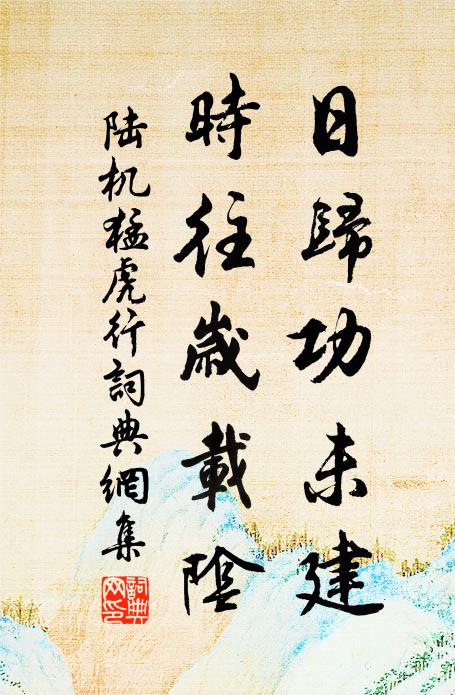 日歸功未建
時往歲載陰
陆机猛虎行詞典網集
詞典网印